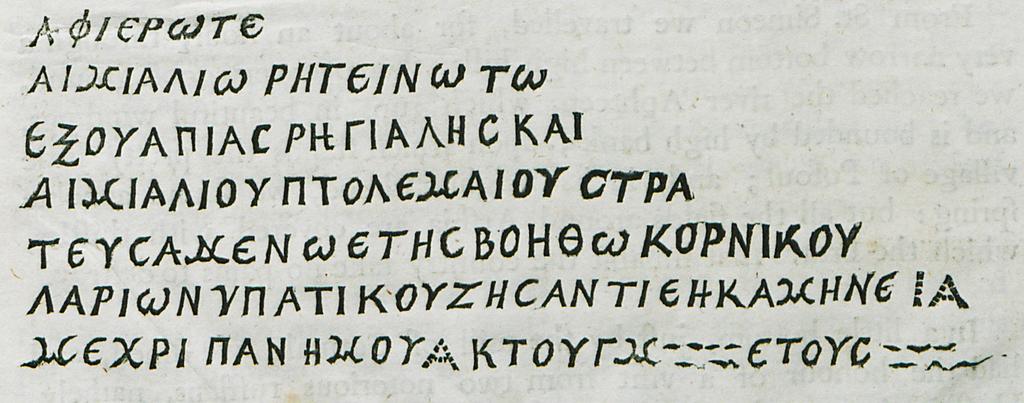 ΑΦΙΕΡΩΤΕ
ΑΙΜΙΑΛΙΩ ΡΗΓΕΙΝΩ ΤΩ
ΕΞΟΥΑΠΙΑϹ ΡΗΓΙΑΛΗϹ ΚΑΙ
ΑΙΜΙΑΛΙΟΥ ΠΤΟΛΕΜΑΙΟΥ ϹΤΡΑ
ΤΕΥϹΑΜΕΝΩΕΤΗϹΒΟΗΘΩ ΚΟΡΝΙΚΟΥ
ΛΑΡΙΩΝΥΠΑΤΙΚΟΥΖΗϹΑΝΤΙΕΗΚΑΜΗΝΕ ΙΑ
ΜΕΧΡΙ ΠΑΝΗΜΟΥΑ ΚΤΟΥΓΜ ΕΤΟΥϹ